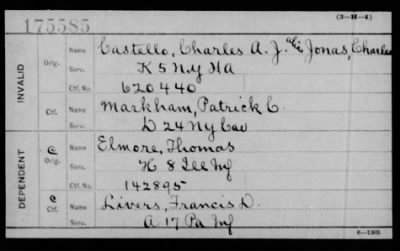 175585
(3-H-4)
INVALID
Orig. Name Castello, Charles A. J. alis Jonas, Charles
Serv. K 5 N.Y. HA
Ctf. No. 620440
Ctf. Name Markham, Patrick C
Serv. D 24 Ny Cav
DEPENDENT
C Orig. Name Elmore, Thomas
Serv. H 8 Ill Inf
Ctf. No. 142895
C Ctf. Name Livers, Francis D.
Serv. A 17 Pa Inf